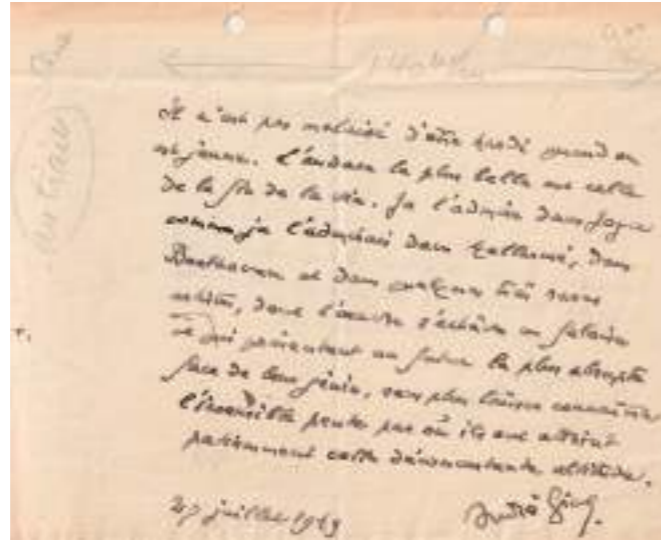 Il n'est pas malaisé d'être hardi quand on
est jeune. L'audace la plus belle est celle
de la fin de la vie. Je l'admire dans Joyce
comme je l'admirais dans Mallarmé, dans
Beethoven et dans quelques très rares
artistes, dont l'œuvre s'achève en falaise
et qui présentent au futur la plus abrupte
face de leur génie, sans plus laisser connaître
l'insensible pente par où ils ont atteint
patiemment cette déconcertante altitude.
27 juillet 19
André Gide.